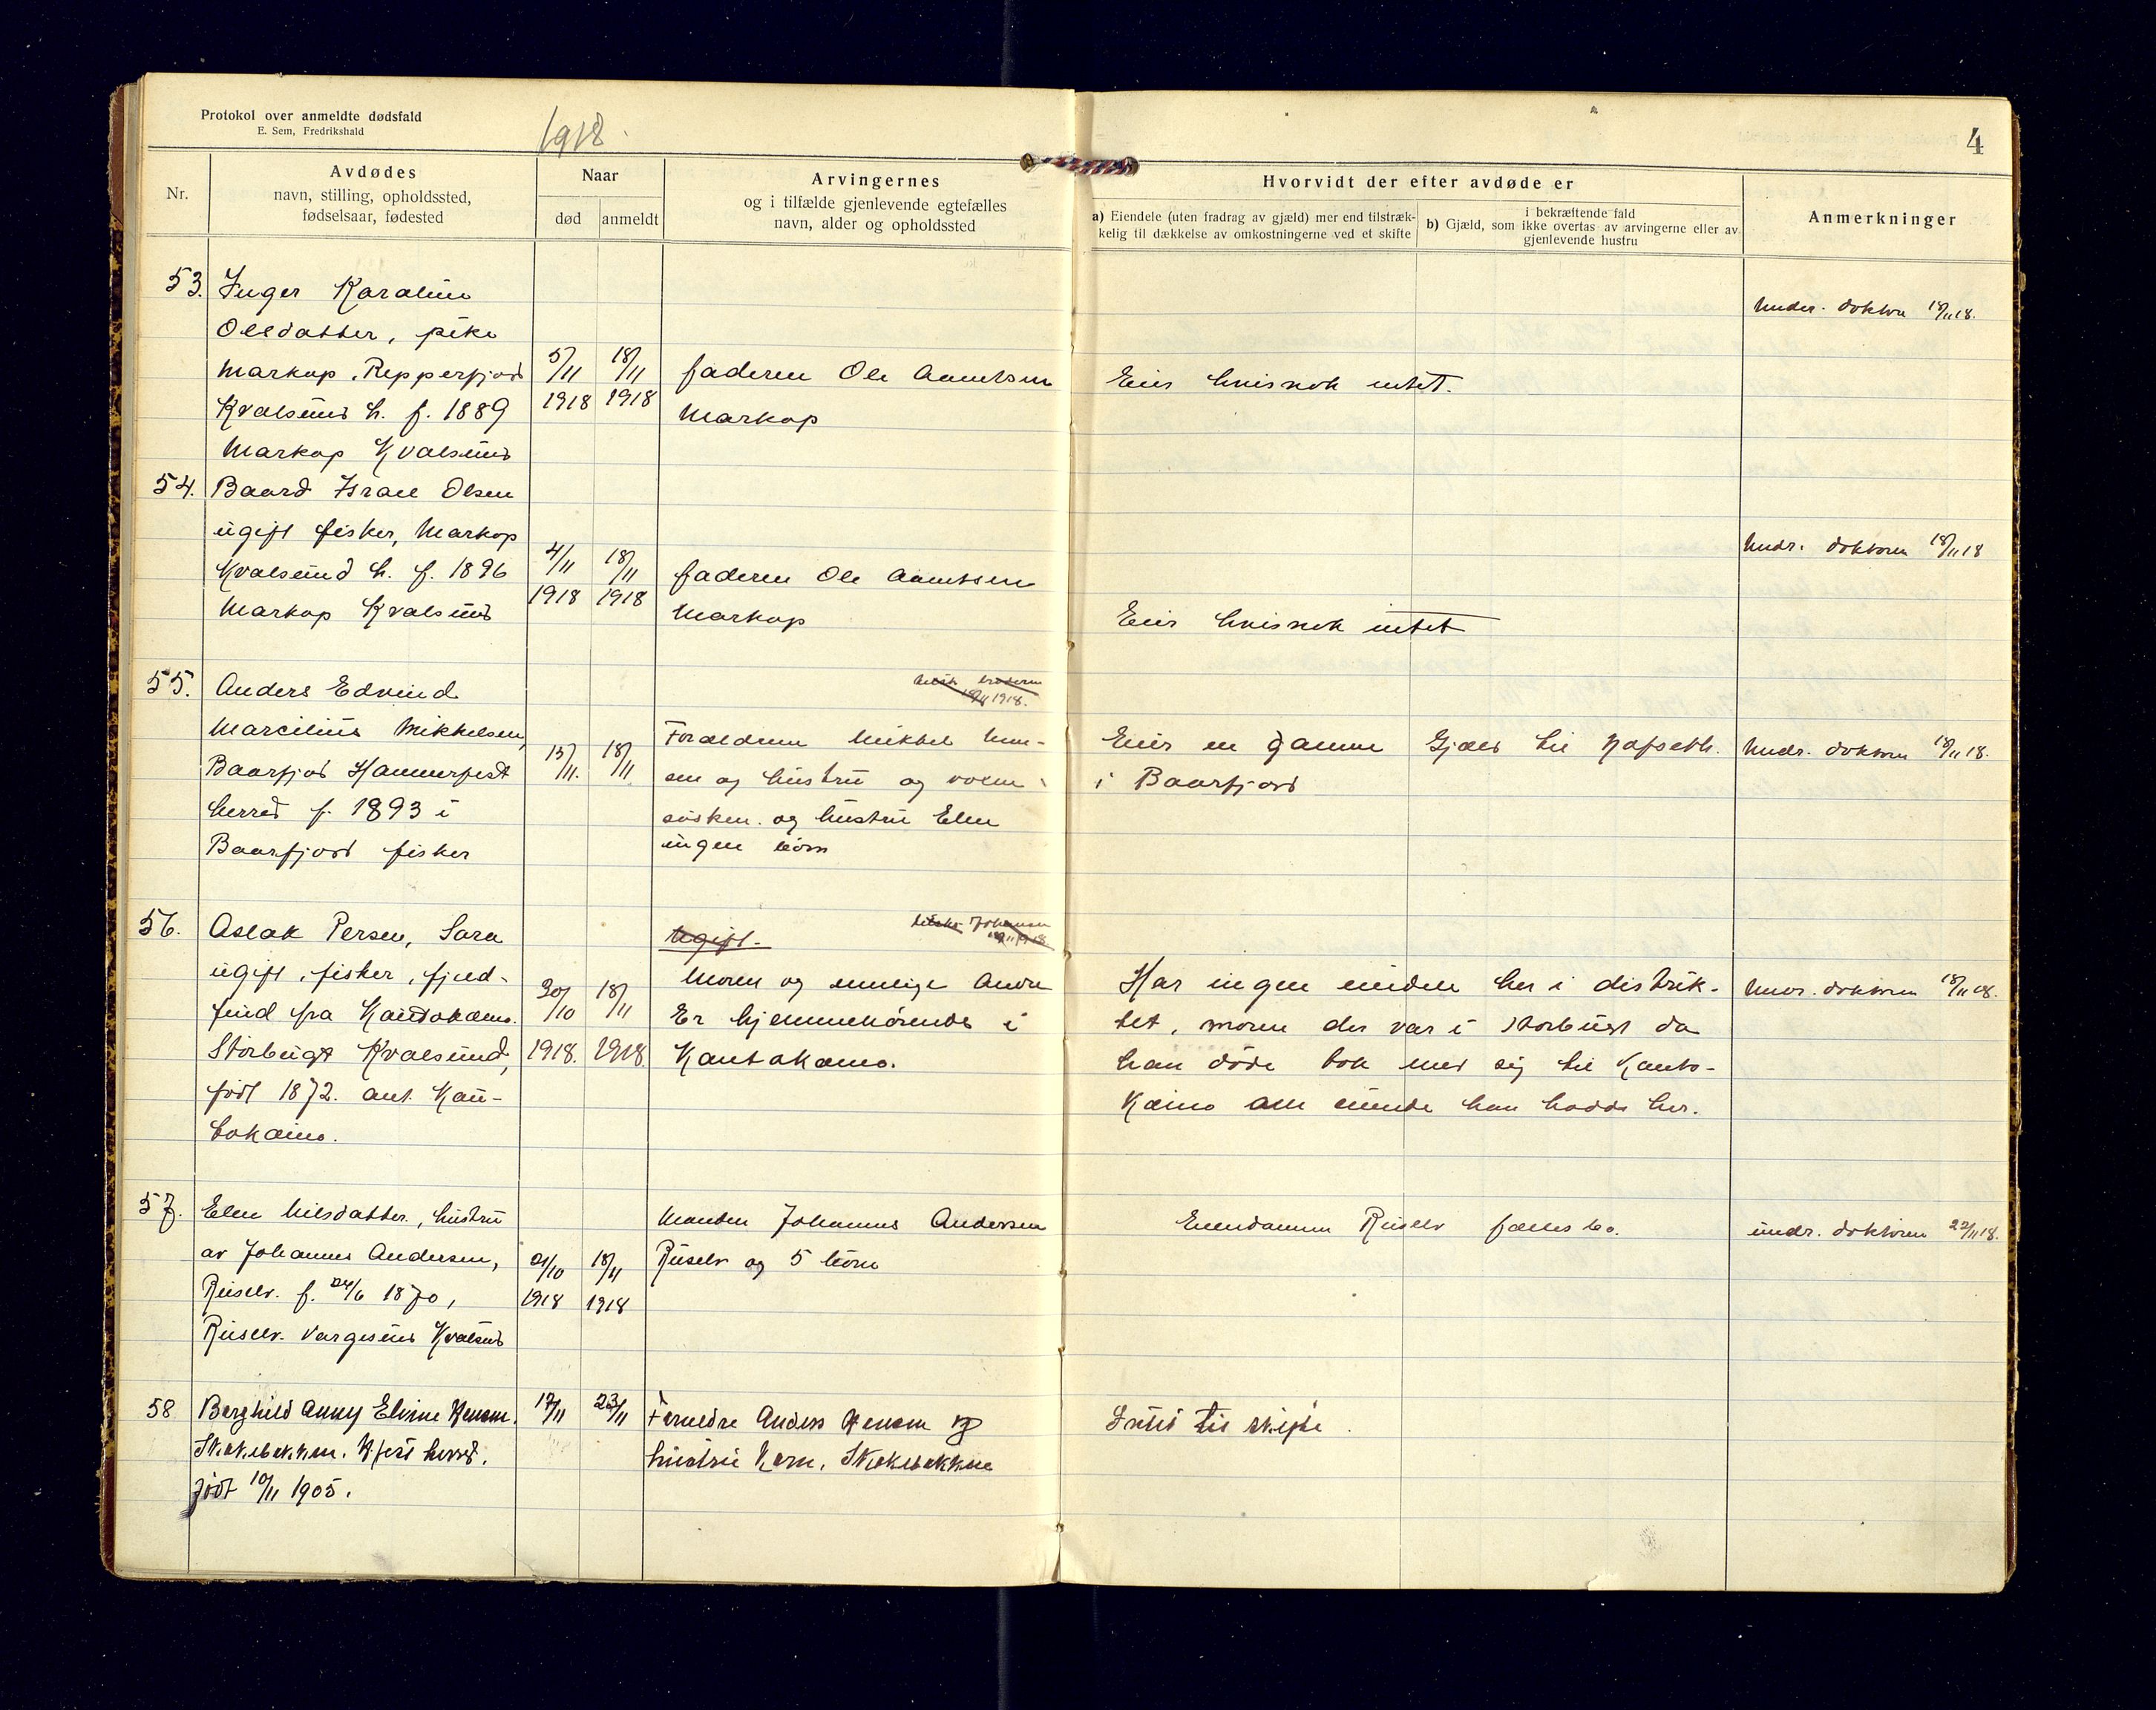 Protokol over anmeldte dødsfald
E. Sem, Fredrikshald
1918.
4
Nr.
Avdødes
navn, stilling, opholdssted,
fødselsaar, fødested
Naar
død
anmeldt
Arvingernes
og i tilfælde gjenlevende egtefælles
navn, alder og opholdssted
Hvorvidt der efter avdøde er
a) Eiendele (uten fradrag av gjæld) mer end tilstræk-
kelig til dækkelse av omkostningerne ved et skifte
i bekræftende fald
b) Gjæld, som ikke overtas av arvingerne eller av
gjenlevende hustru
Anmerkninger
53. Inger Karoline
Olsdatter, pike
Markop. Repperfjord
Kvalsund h. f. 1889
Markop Kvalsund
5/11 1918
18/11 1918
faderen Ole Aamtsen
Markop
Eier hvisnok intet.
Under. doktoren 18/11 18.
54. Baard Israel Olsen
ugift fisker, Markop
Kvalsund h. f. 1896
Markop Kvalsund
4/11 1918
18/11 1918
faderen Ole Aamtsen
Markop
Eier hvisnok intet
Undr. doktoren 18/11 18
55. Anders Edvind
Marcilius Mikkelsen,
Baarfjord Hammerfest
herred f. 1893 i
Baarfjord fisker
15/11.
18/11
broderen
18/11 1918.
Forældrene Mikkel
og hustru og
søsken. og hustru Elen
ingen børn
Eier en gamme
i Baarfjord
Gjæld til
Undr. doktoren 18/11 18.
56. Aslak Persen, Sara
ugift, fisker, fjeld-
find fra Kautokæino.
Storbugt Kvalsund,
født 1872. ant. Kau-
tokæino.
30/10 1918.
18/11 1918.
Johansen
18/11 1918
Ugift.
Moren og
Er hjemmehørende i
Kautokæino.
Har ingen eiendele her i distrik-
tet, moren der var i Storbugt da
han døde tok med sig til Kauto-
kæino alle eiende han hadde her.
Undr. doktoren 18/11 18.
57. Elen Nilsdatter, hustru
av Johannes Andersen,
Ruselv. f. 24/6 1870,
Ruselv. Vargsund Kvalsund
21/10 1918
18/11 1918
Manden Johannes Andersen
Ruselv og 5 børn
Eiendommen Ruselv fælles bo.
undr. doktoren 22/11 18.
58 Borghild Anny Elvine
Stakebakken. H.fest herred.
født 10/11 1905.
17/11
23/11
Forældre Anders og
hustru Karn, Stakebakken
Intet til skifte.